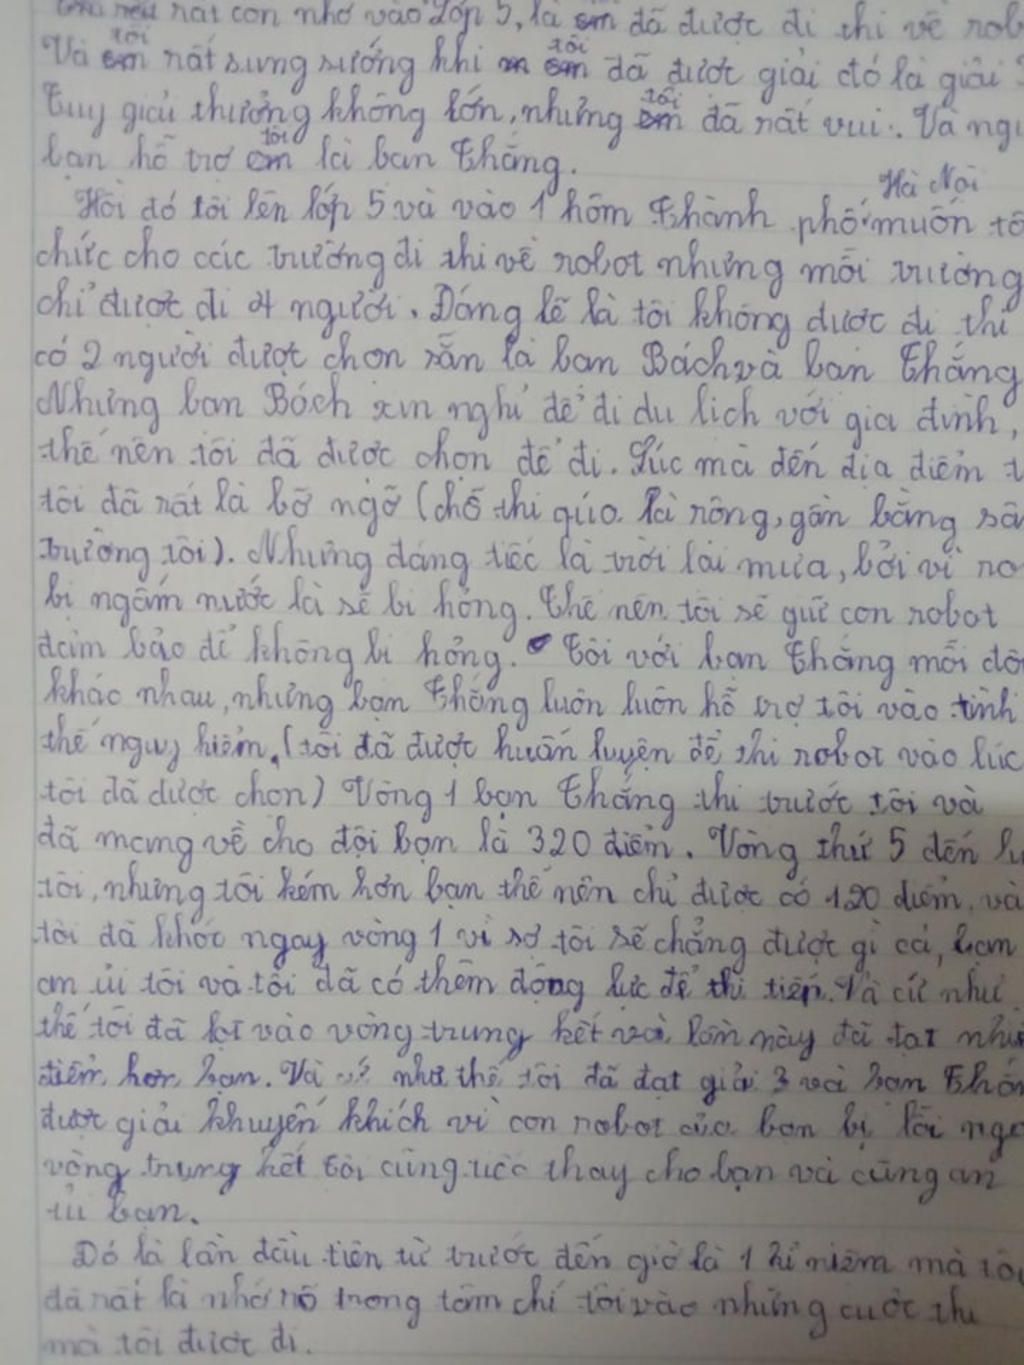 rất con nhớ vào lớp 5, là em đã được đi thi về rob
tôi tôi
Và em rất sung sướng khi em đã được giải đó là giải 3
tôi
Tuy giải thưởng không lớn, nhưng em đã rất vui. Và ngư
tôi
bạn hỗ trợ em là bạn Thắng.
Hà Nội
Hồi đó tôi lên lớp 5 và vào 1 hôm thành phố muốn tổ
chức cho các trường đi thi về robot nhưng mỗi trường
chỉ được đi 4 người. Đáng lẽ là tôi không được đi thi
có 2 người được chọn sẵn là bạn Bách và bạn Thắng
Nhưng bạn Bách xin nghỉ để đi du lịch với gia đình,
thế nên tôi đã được chọn để đi. Lúc mà đến địa điểm t
tôi đã rất là bỡ ngỡ (chỗ thi qúa là rộng, gần bằng sâ
trường tôi). Nhưng đáng tiếc là trời lại mưa, bởi vì ro
bị ngấm nước là sẽ bị hỏng. Thế nên tôi sẽ giữ con robot
đảm bảo để không bị hỏng. Tôi với bạn Thắng mỗi độ
khác nhau, nhưng bạn Thắng luôn luôn hỗ trợ tôi vào tình
thế nguy hiểm. (tôi đã được huấn luyện để thi robot vào lúc
tôi đã được chọn) Vòng 1 bạn Thắng thi trước tôi và
đã mang về cho đội bạn là 320 điểm. Vòng thứ 5 đến lư
tôi, nhưng tôi kém hơn bạn thế nên chỉ được có 120 điểm, và
tôi đã khóc ngay vòng 1 vì sợ tôi sẽ chẳng được gì cả, bạn
an ủi tôi và tôi đã có thêm động lực để thi tiếp. Và cứ như
thế tôi đã lọt vào vòng trung kết và lần này đã đạt nhiề
điểm hơn bạn. Và cứ như thế tôi đã đạt giải 3 và bạn Thắn
được giải khuyến khích vì con robot của bạn bị lỗi nga
vòng trung kết tôi cũng tiếc thay cho bạn và cũng an
ủi bạn.
Đó là lần đầu tiên từ trước đến giờ là 1 kỉ niệm mà tôi
đã rất là nhớ rõ trong tâm chí tôi vào những cuộc thi
mà tôi được đi.